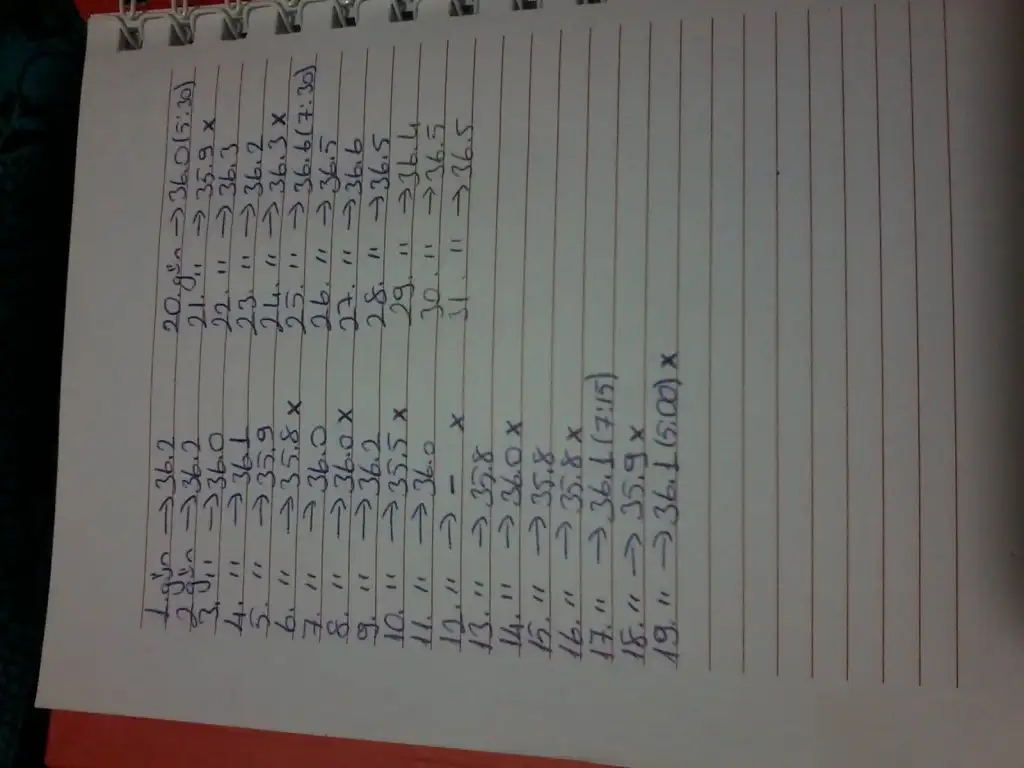 1.gün →36.2
2.gün →36.2
3. " →36.0
4. " →36.1
5. " →35.9
6. " →35.8 x
7. " →36.0
8. " →36.0 x
9. " →36.2
10. " →35.5 x
11. " →36.0
12. " → – x
13. " →35.8
14. " →36.0 x
15. " →35.8
16. " →35.8 x
17. " →36.1 (7:15)
18. " →35.9 x
19. " →36.1 (5:00) x
20.gün →36.0 (5:30)
21. " →35.9 x
22. " →36.3
23. " →36.2
24. " →36.3 x
25. " →36.6 (7:30)
26. " →36.5
27. " →36.6
28. " →36.5
29. " →36.4
30. " →36.5
31. " →36.5